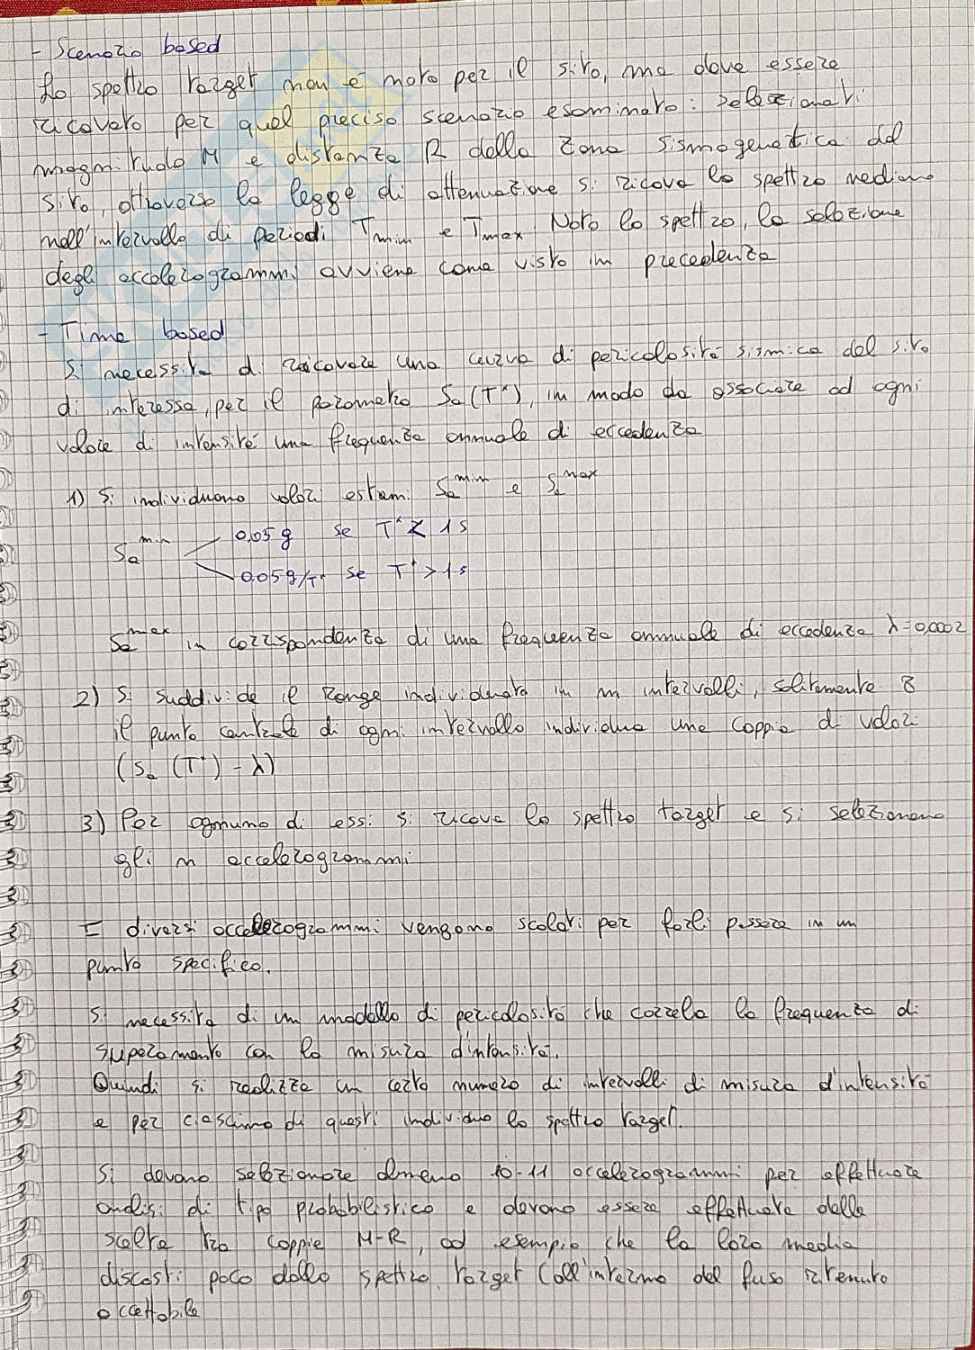 - Scenario based
Lo spettro target non è noto per il sito, ma deve essere
ricavato per quel preciso scenario esaminato: selezionati
magnitudo M e distanza R della zona sismogenetica dal
sito, attraverso la legge di attenuazione si ricava lo spettro mediano
nell'intervallo di periodi Tmin e Tmax. Noto lo spettro, la selezione
degli accelerogrammi avviene come visto in precedenza
- Time based
Si necessita di ricavare una curva di pericolosità sismica del sito
di interesse, per il parametro Sa(T*), in modo da associare ad ogni
valore di intensità una frequenza annuale di eccedenza
1) Si individuano valori estremi Sa^min e Sa^max
Sa^min 0,05 g se T* < 1s
0,05g/T* se T* > 1s
Sa^max in corrispondenza di una frequenza annuale di eccedenza λ=0,0002
2) Si suddivide il range individuato in m intervalli, solitamente 8
il punto centrale di ogni intervallo individua una coppia di valori
(Sa (T*) - λ)
3) Per ognuno di essi si ricava lo spettro target e si selezionano
gli n accelerogrammi
I diversi accelerogrammi vengono scalati per farli passare in un
punto specifico.
Si necessita di un modello di pericolosità che correla la frequenza di
superamento con la misura d'intensità.
Quindi si realizza un certo numero di intervalli di misura d'intensità
e per ciascuno di questi individuo lo spettro target.
Si devono selezionare almeno 10-11 accelerogrammi per effettuare
analisi di tipo probabilistico e devono essere effettuate delle
scelte tra coppie M-R, ad esempio che la loro media
discosti poco dallo spettro target (all'interno del fuso ritenuto
accettabile